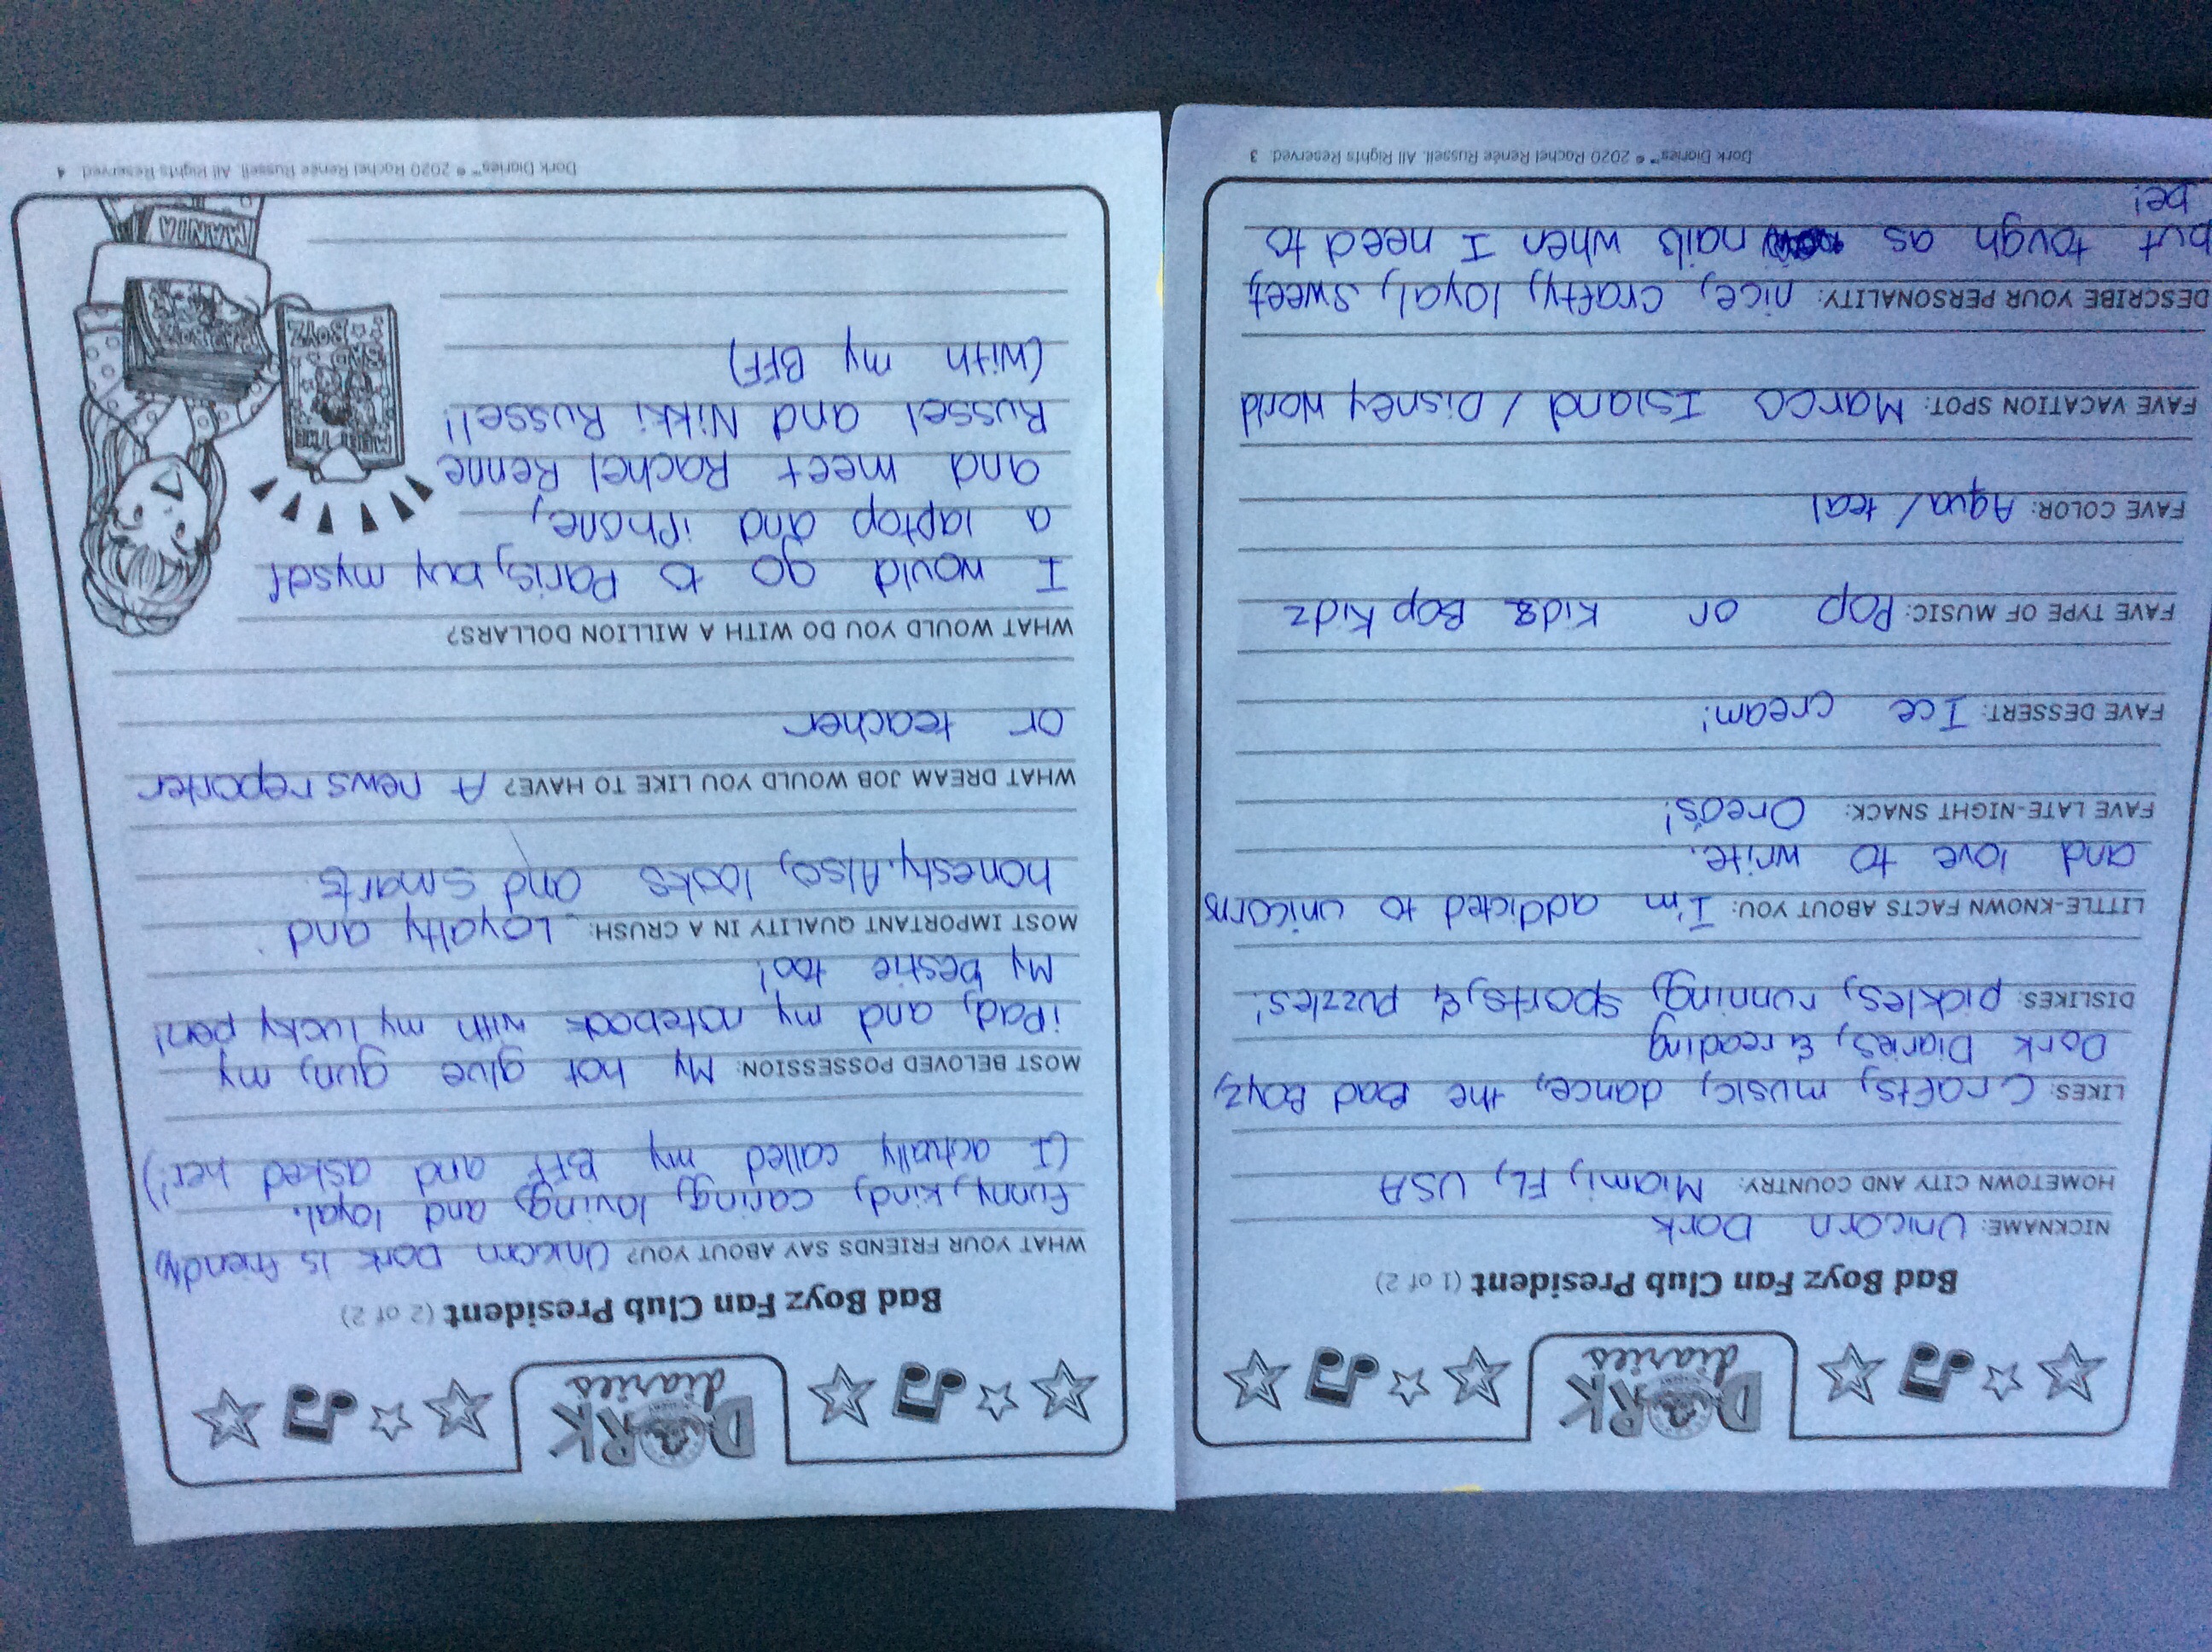 DORK
diaries
Bad Boyz Fan Club President (1 of 2)
NICKNAME: Unicorn Dork
HOMETOWN CITY AND COUNTRY: Miami, FL, USA
LIKES: Crafts, music, dance, the Bad Boyz,
Dork Diaries, & reading
DISLIKES: pickles, running, sports, & puzzles!
LITTLE-KNOWN FACTS ABOUT YOU: I'm addicted to unicorns
and love to write.
FAVE LATE-NIGHT SNACK: Oreos!
FAVE DESSERT: Ice cream!
FAVE TYPE OF MUSIC: Pop or Kidz Bop Kidz
FAVE COLOR: Aqua/teal
FAVE VACATION SPOT: Marco Island / Disney World
DESCRIBE YOUR PERSONALITY: nice, crafty, loyal, sweet,
but tough as nails when I need to
be!
Dork Diaries™ © 2020 Rachel Renée Russell. All Rights Reserved. 3
DORK
diaries
Bad Boyz Fan Club President (2 of 2)
WHAT YOUR FRIENDS SAY ABOUT YOU? Unicorn Dork is friendly,
funny, kind, caring, loving, and loyal.
(I actually called my BFF and asked her!)
MOST BELOVED POSSESSION: My hot glue gun, my
iPad, and my notebook with my lucky pen!
My bestie too!
MOST IMPORTANT QUALITY IN A CRUSH: Loyalty and
honesty. Also, looks and smarts.
WHAT DREAM JOB WOULD YOU LIKE TO HAVE? A news reporter
or teacher
WHAT WOULD YOU DO WITH A MILLION DOLLARS?
I would go to Paris, buy myself
a laptop and iPhone,
and meet Rachel Renne
Russel and Nikki Russel!
(with my BFF)
MEET THE
BAD
BOYZ
MANIA
Dork Diaries™ © 2020 Rachel Renée Russell. All Rights Reserved. 4